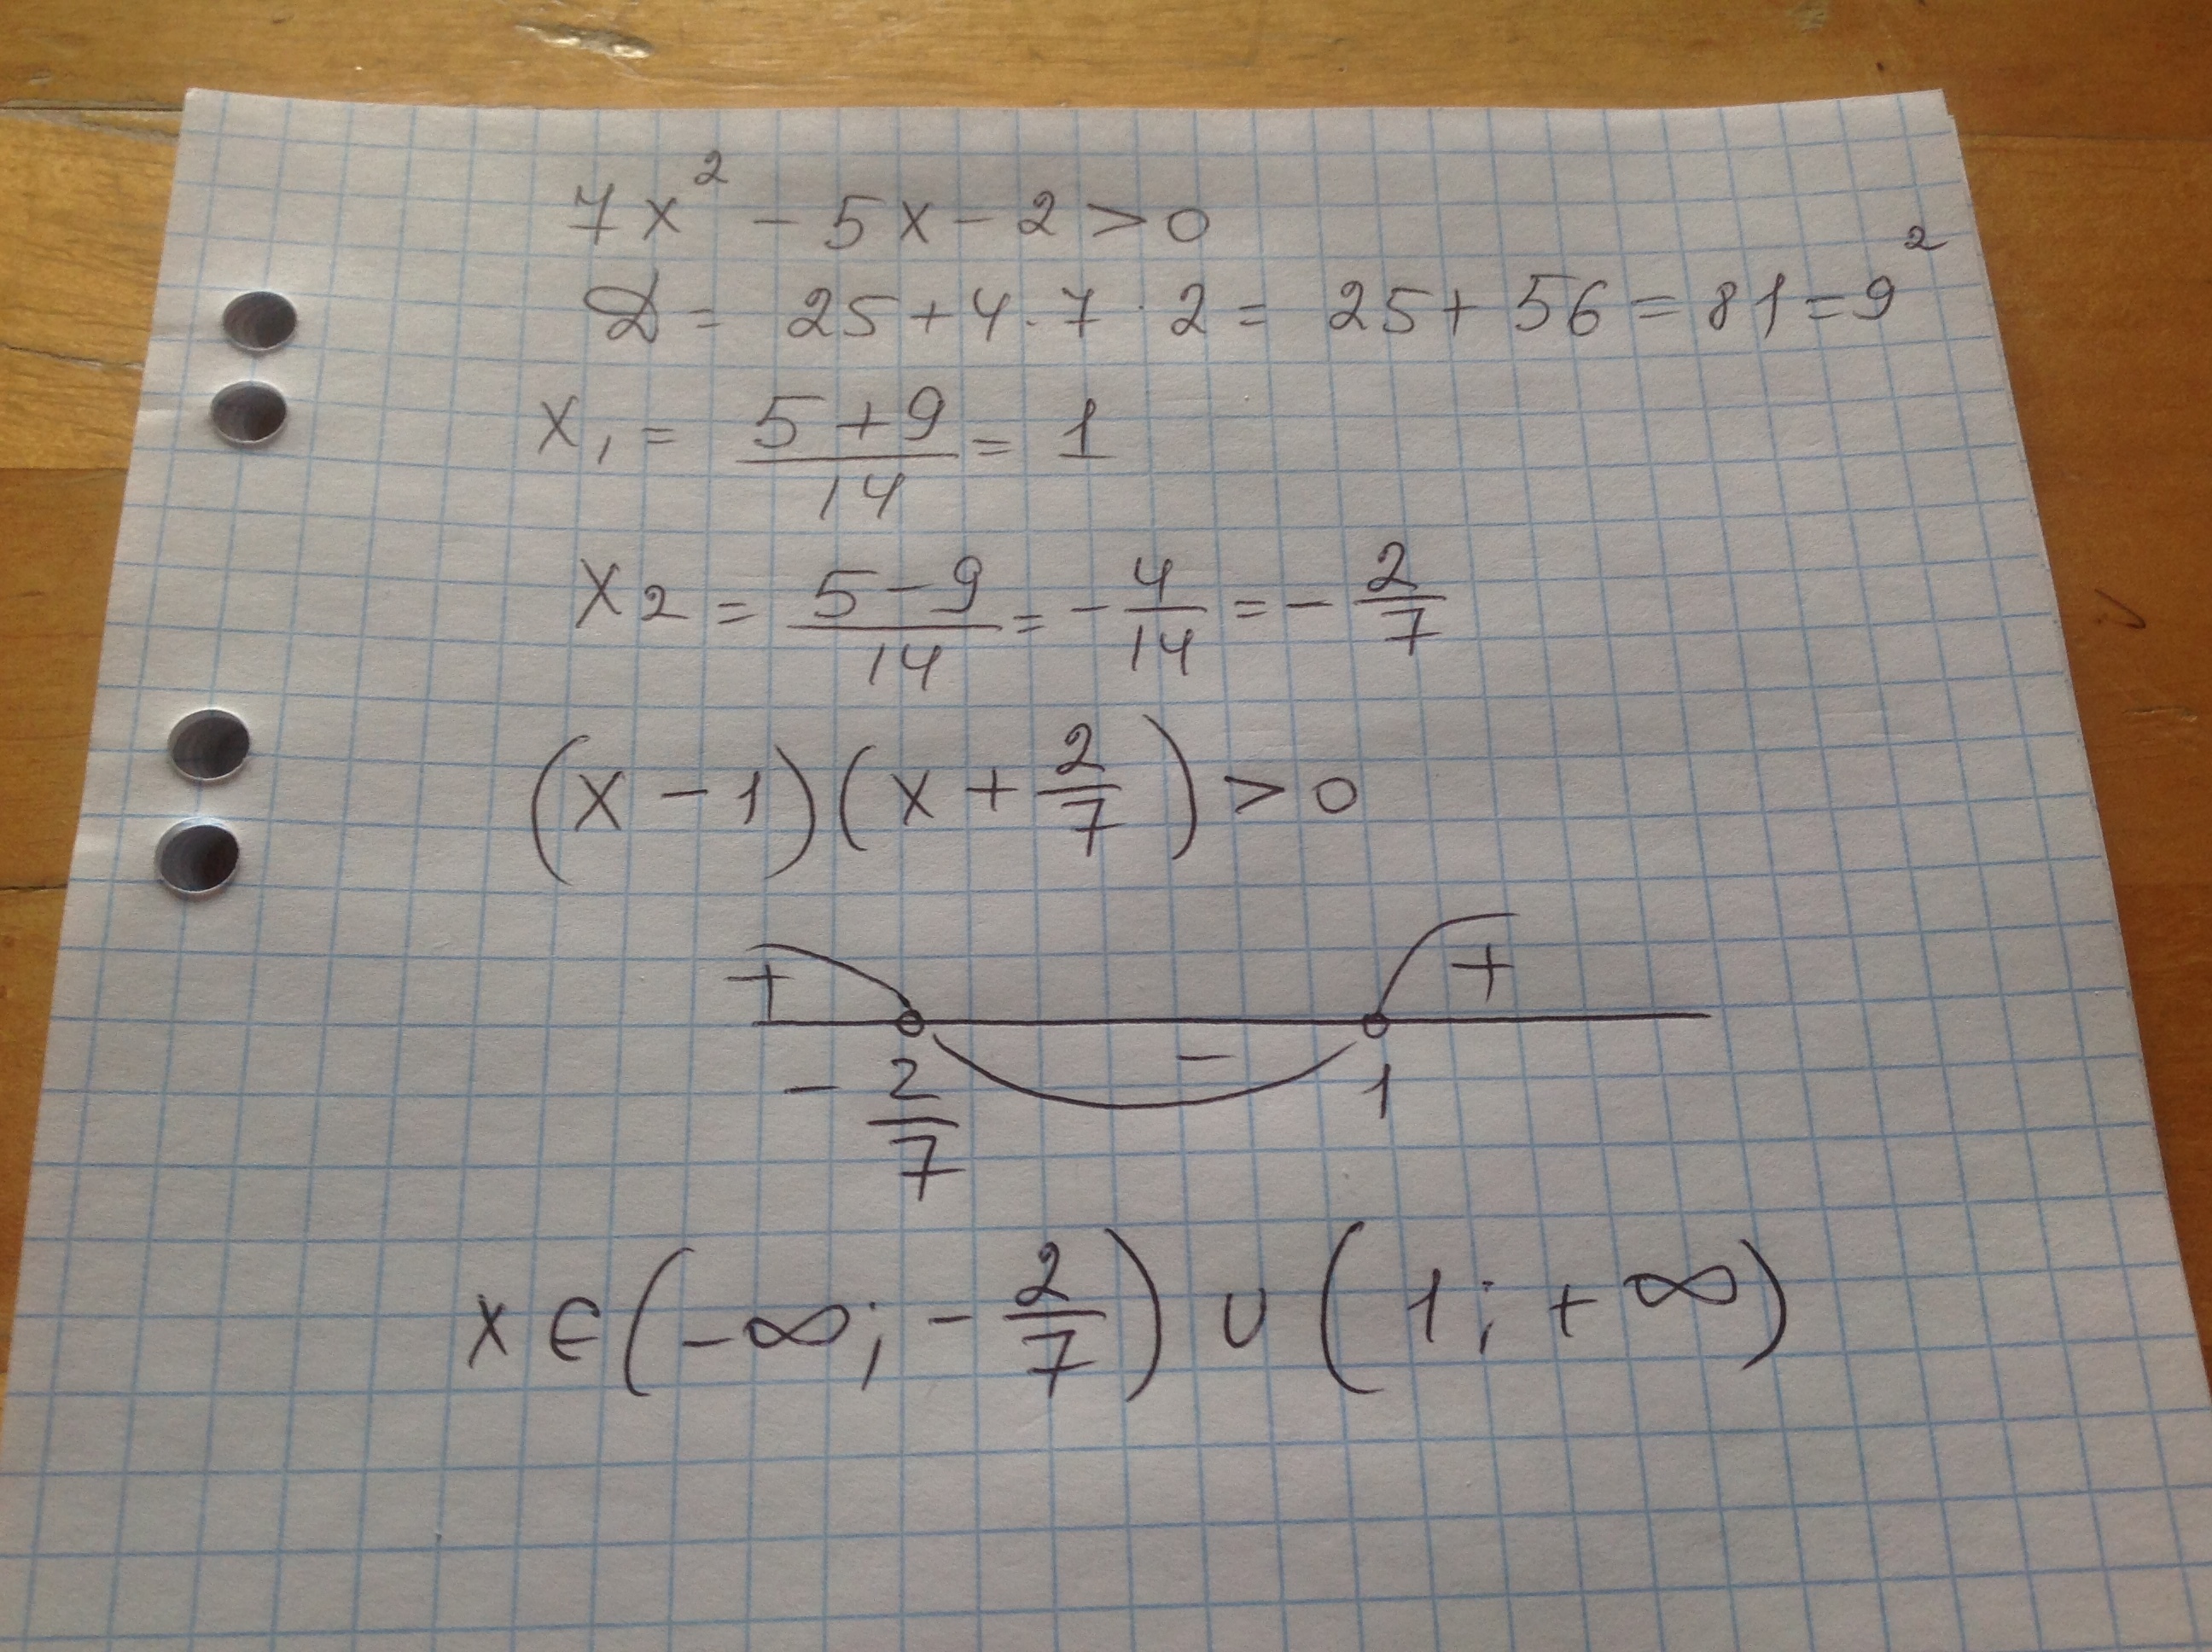 7x² - 5x - 2 > 0
D = 25 + 4 · 7 · 2 = 25 + 56 = 81 = 9²
x₁ = (5 + 9)/14 = 1
x₂ = (5 - 9)/14 = - 4/14 = - 2/7
(x - 1)(x + 2/7) > 0
+ - +
- 2/7 1
x ∈ (-∞; - 2/7) ∪ (1; +∞)